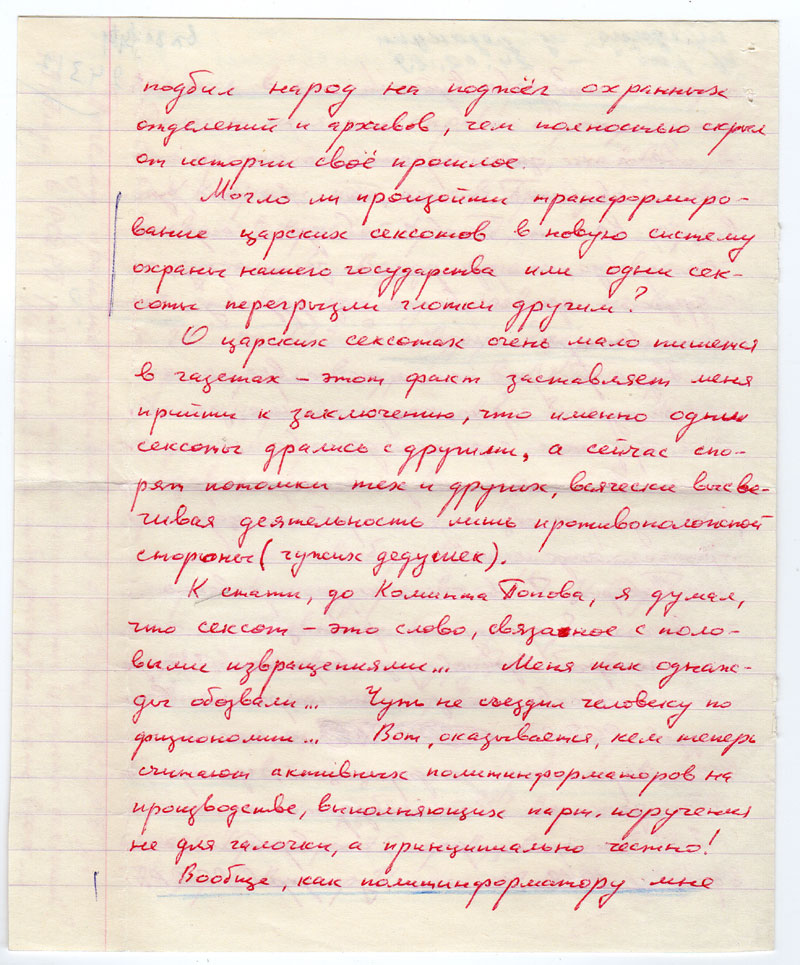 подбил народ на поджёг охранных
отделений и архивов, чем полностью скрыл
от истории своё прошлое.
Могло ли произойти трансформиро-
вание царских сексотов в новую систему
охраны нашего государства или одни сек-
соты перегрызли глотки другим?
О царских сексотах очень мало пишется
в газетах – этот факт заставляет меня
прийти к заключению, что именно одни
сексоты дрались с другими, а сейчас спо-
рят потомки тех и других, всячески высве-
чивая деятельность лишь противоположной
стороны (чужих дедушек).
К стати, до Попова, я думал,
что сексот – это слово, связанное с поло-
выми извращениями... Меня так однаж-
ды обозвали... Чуть не съездил человеку по
физиономии... Вот, оказывается, кем теперь
считают активных политинформаторов на
производстве, выполняющих парт. поручения
не для галочки, а принципиально честно!
Вообще, как политинформатору мне